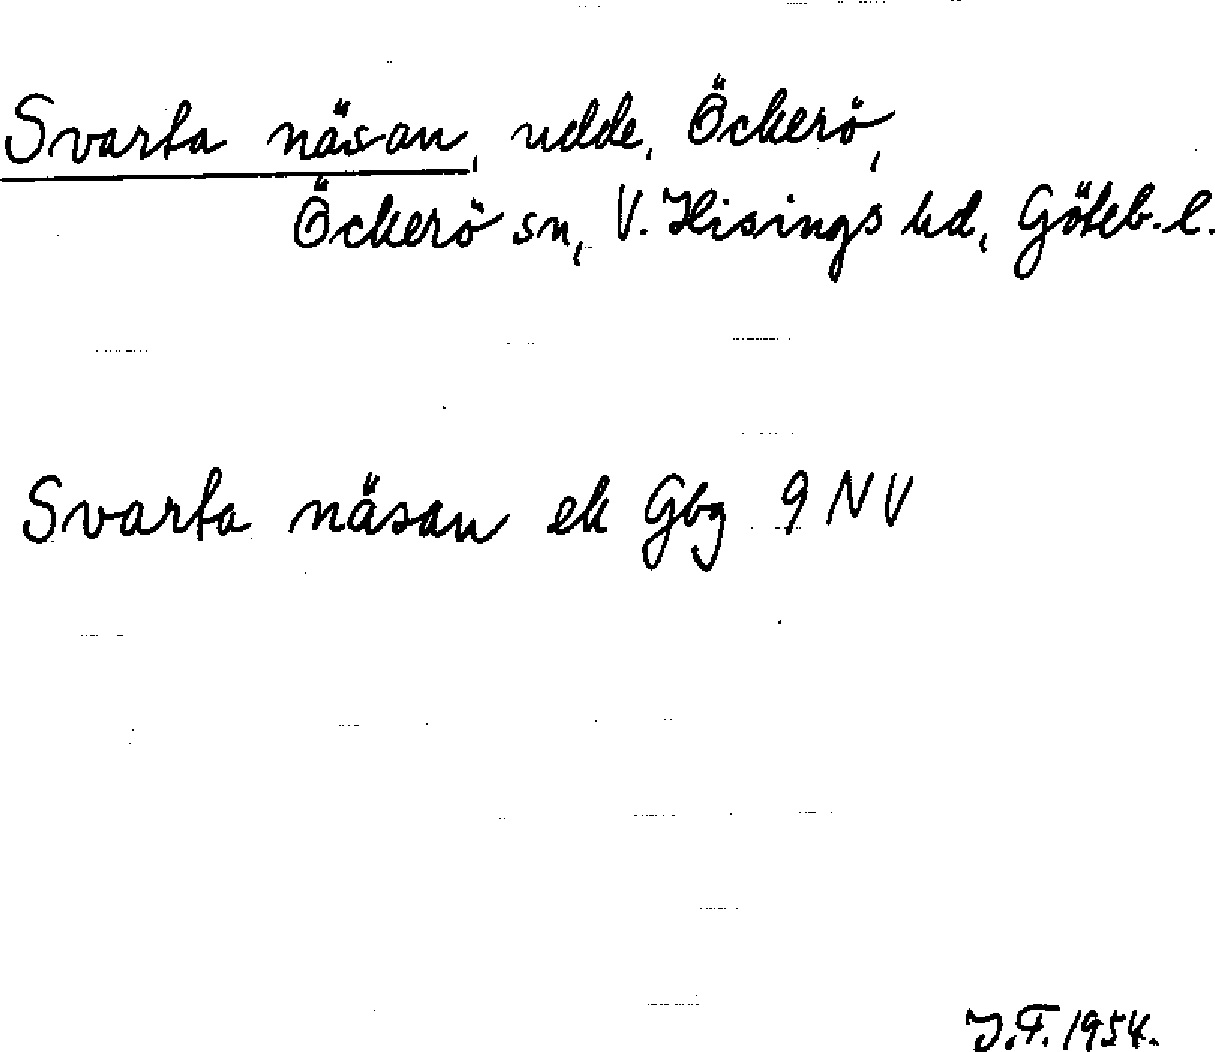 Svarta näsan, udde, Öckerö,
Öckerö sn, V. Hisings hd, Göteb. l.
Svarta näsan ek Gbg 9 NV
J.F. 1954.